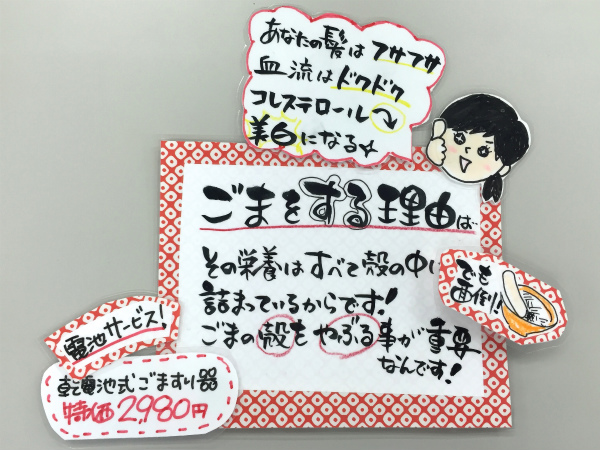 あなたの髪はフサフサ
血流はドクドク
コレステロール↷
美白になる☆
ごまをする理由は…
その栄養はすべて殻の中に
詰まっているからです!
ごまの殻をやぶる事が重要
なんです!
でも
面倒!
電池サービス!
乾電池式ごますり器
特価2,980円